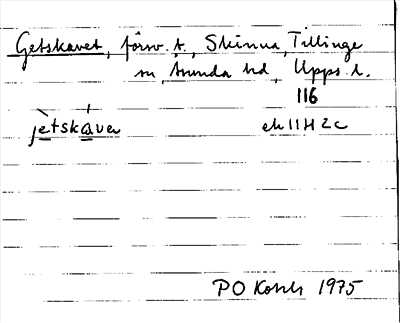 Getskavet, försv. t., Skinna, Tillinge
sn, Åsunda hd, Upps. l.
116
jètskáven ek 11H 2c
PO Kohls 1975